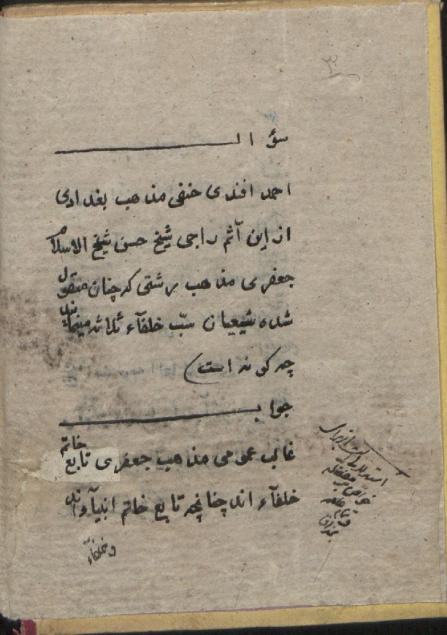 سؤال
احمد افندی حنفی مذهب بغدادی
از این آثم راجی شیخ حسن شیخ الاسلام
جعفری مذهب رشتی که چنان منقول
شده شیعیان سبّ خلفآء ثلاثه مینمایند
چه کونه است
جواب
غالب عمومی مذاهب جعفری تابع خاتم
خلفآء اند چنانچه تابع خاتم انبیآءاند
و خلفآء